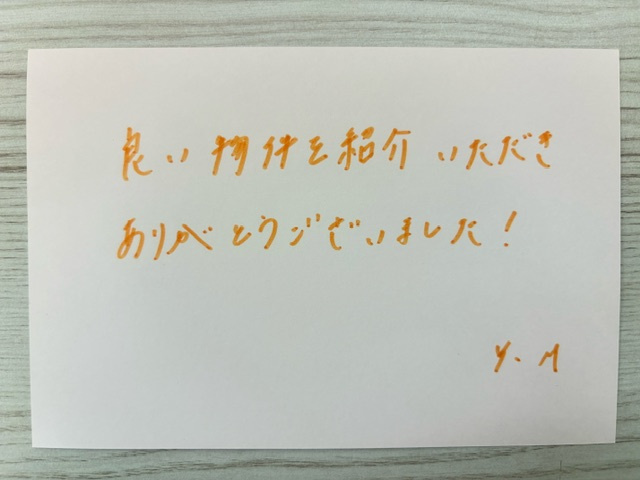 良い物件を紹介いただき
ありがとうございました!
Y.M